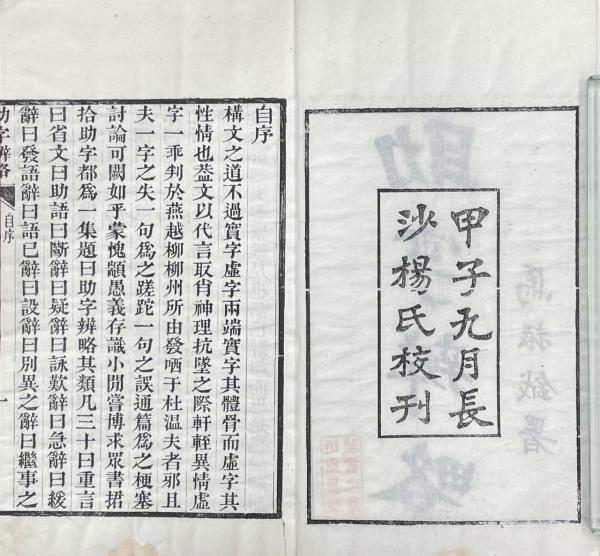 甲子九月長
沙楊氏校刊
自序
構文之道不過實字虛字兩端實字其體骨而虛字其
性情也葢文以代言取肖神理抗墜之際軒輊異情虛
字一乖判於燕越柳柳州所由發哂于杜温夫者邪且
夫一字之失一句爲之蹉跎一句之誤通篇爲之梗塞
討論可闕如乎蒙愧顓愚義存識小閒嘗博求眾書捃
拾助字都爲一集題曰助字辨略其類凡三十曰重言
曰省文曰助語曰斷辭曰疑辭曰詠歎辭曰急辭曰緩
辭曰發語辭曰語已辭曰設辭曰別異之辭曰繼事之
助字辨略
自序
一